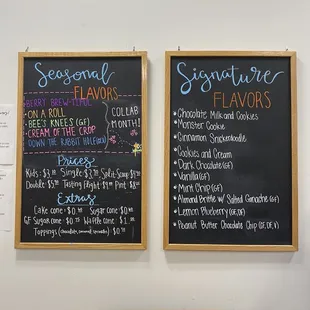 Seasonal
FLAVORS
BERRY BREW-TIFUL
ON A ROLL
BEE'S KNEES (GF)
CREAM OF THE CROP
DOWN THE RABBIT HOLE
COLLAB
MONTH!
Prices
Kids: Single: Split Scoop:
Double: Tasting Flight: Pint:
Extras
Cake cone: Sugar cone:
GF Sugar cone: Waffle cone:
Toppings
Signature
FLAVORS
Chocolate Milk and Cookies
Monster Cookie
Cinnamon Snickerdoodle
Cookies and Cream
Dark Chocolate (GF)
Vanilla (GF)
Mint Chip (GF)
Almond Brittle w/ Salted Ganache (GF)
Lemon Blueberry (GF, DF)
Peanut Butter Chocolate Chip (GF, DF, V)